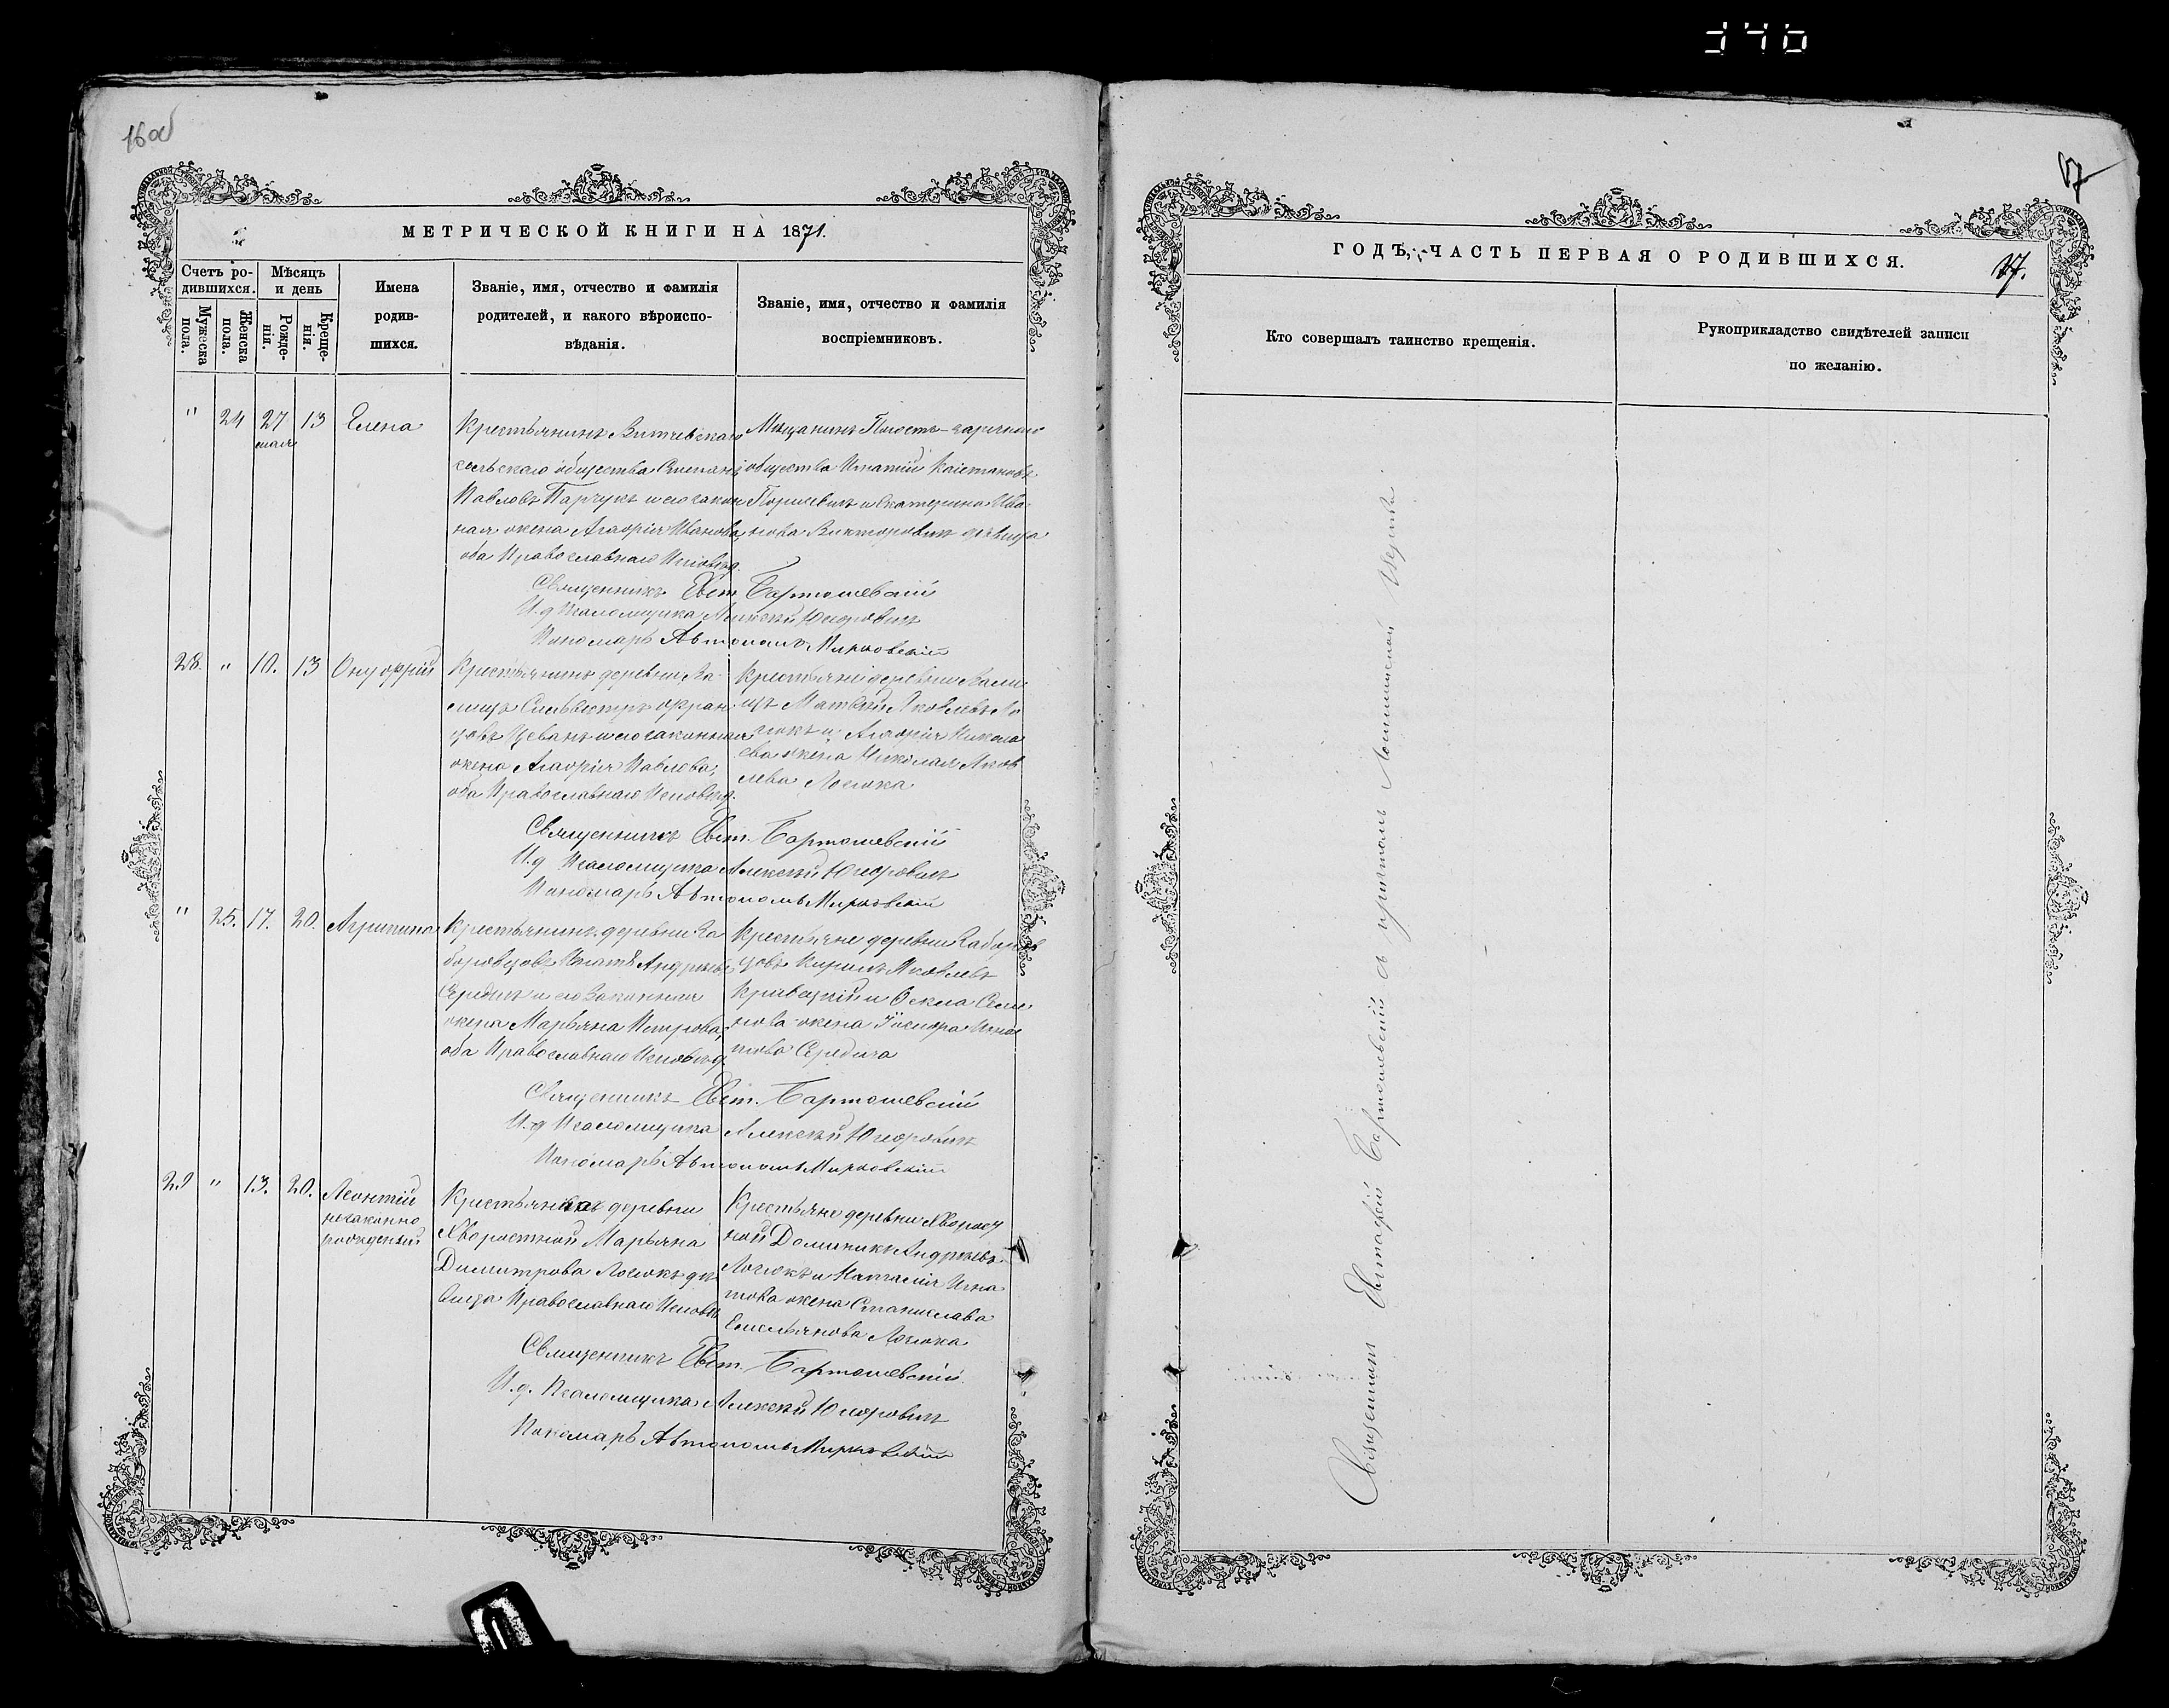 16об
МЕТРИЧЕСКОЙ КНИГИ НА 1871.
Счетъ родившихся.
Мужеска пола.
Женска пола.
Мѣсяцъ и день
Рожденія.
Крещенія.
Имена родившихся.
Званіе, имя, отчество и фамилія родителей, и какого вѣроисповѣданія.
Званіе, имя, отчество и фамилія воспріемниковъ.
" 24 27 мая 13 Елена
Крестьянинъ Витчевскаго
сельскаго общества Степанъ
Павловъ Парчукъ и его закон
ная жена Агафія Иванова,
оба Православнаго Исповѣд.
Мѣщанинъ Погостъ-заричного
общества Игнатій
и Екатерина Ива
нова Викторовичъ дѣвица
Священникъ Евст. Бартошевскій
И.д Псаломщика Алексѣй Югоровичъ
Пономарь Автономъ Мирковскій
28. " 10. 13 Онуфрій
Крестьянинъ деревни За
Сильвестръ Фран
цовъ Цеванъ и его законная
жена Агафія Павлова,
оба Православнаго Исповѣд.
Крестьяне деревни
Матвей Яковлевъ Ло
и Агафія Никола
ева жена Николая Яков
лева
Священникъ Евст. Бартошевскій
И.д Псаломщика Алексѣй Югоровичъ
Пономарь Автономъ Мирковскій
" 25. 17. 20. Агрипина
Крестьянинъ деревни За
боровцовъ Игнатъ Андреевъ
Середичъ и его законная
жена Марьяна Петрова,
оба Православнаго Исповѣд.
Крестьяне деревни Заборов
цовъ Кирилъ Яковлевъ
Кравецкій и Фекла Семе
нова жена Ѵосифа Игна
това Середича
Священникъ Евст. Бартошевскій
И.д Псаломщика Алексѣй Югоровичъ
Пономарь Автономъ Мирковскій
29 " 13. 20. Леонтій
незаконно
рожденный
Крестьянка деревни
Хворостной Марьяна
Димитрова дѣ
вица Православнаго Исповѣд
Крестьяне деревни Хворост
ной Доминикъ Андреевъ
и Наталія Игна
това жена Станислава
Емельянова
Священникъ Евст. Бартошевскій
И.д. Псаломщика Алексѣй Югоровичъ
Пономарь Автономъ Мирковскій
17
ГОДЪ, ЧАСТЬ ПЕРВАЯ О РОДИВШИХСЯ.
17.
Кто совершалъ таинство крещенія.
Рукоприкладство свидѣтелей записи
по желанію.
Священникъ Евстафій Бартошевскій съ причтомъ Логишинской Церкви